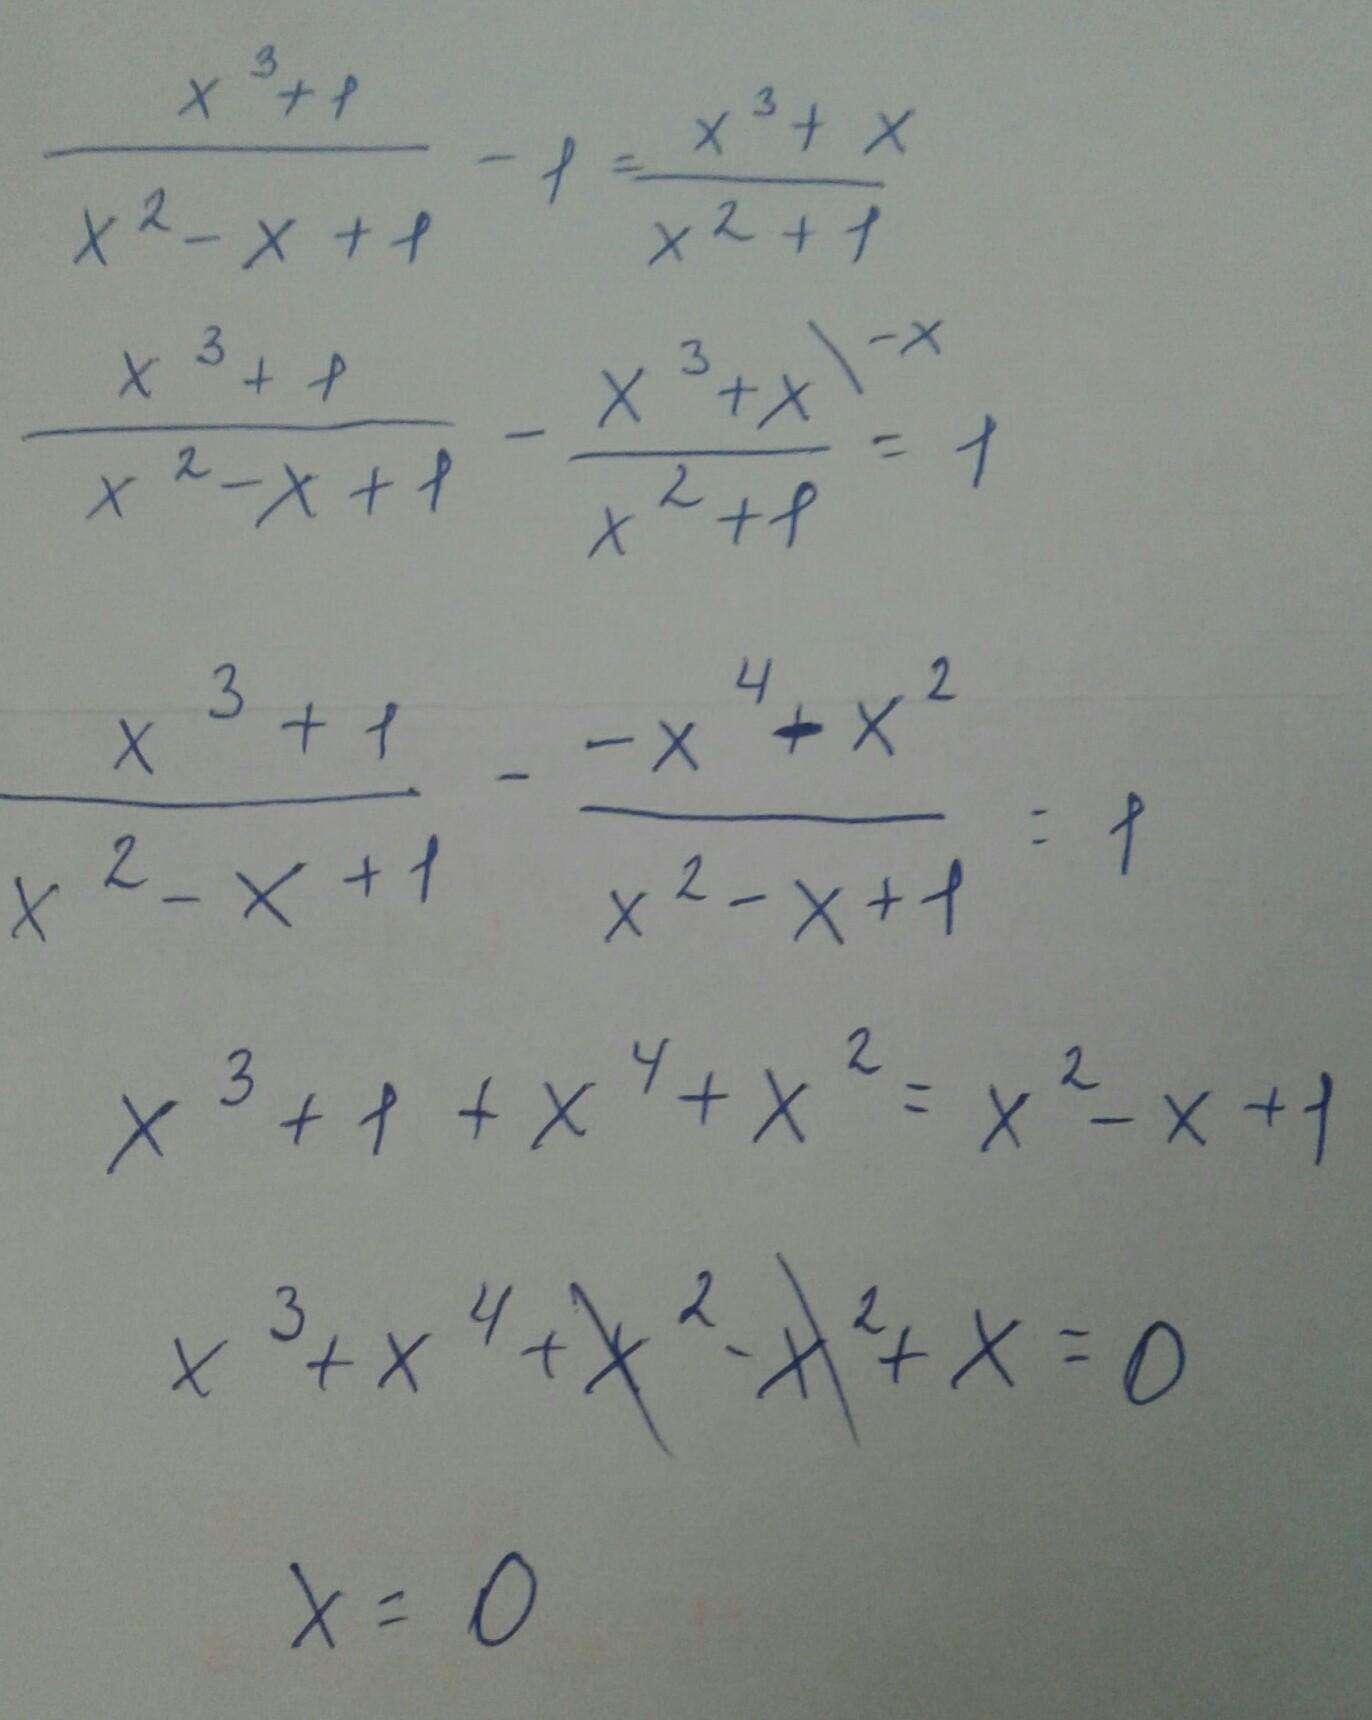 x³+1 / x²-x+1 - 1 = x³+x / x²+1
x³+1 / x²-x+1 - x³+x \ -x / x²+1 = 1
x³+1 / x²-x+1 - -x⁴+x² / x²-x+1 = 1
x³+1+x⁴+x²=x²-x+1
x³+x⁴+x²-x²+x=0
x=0